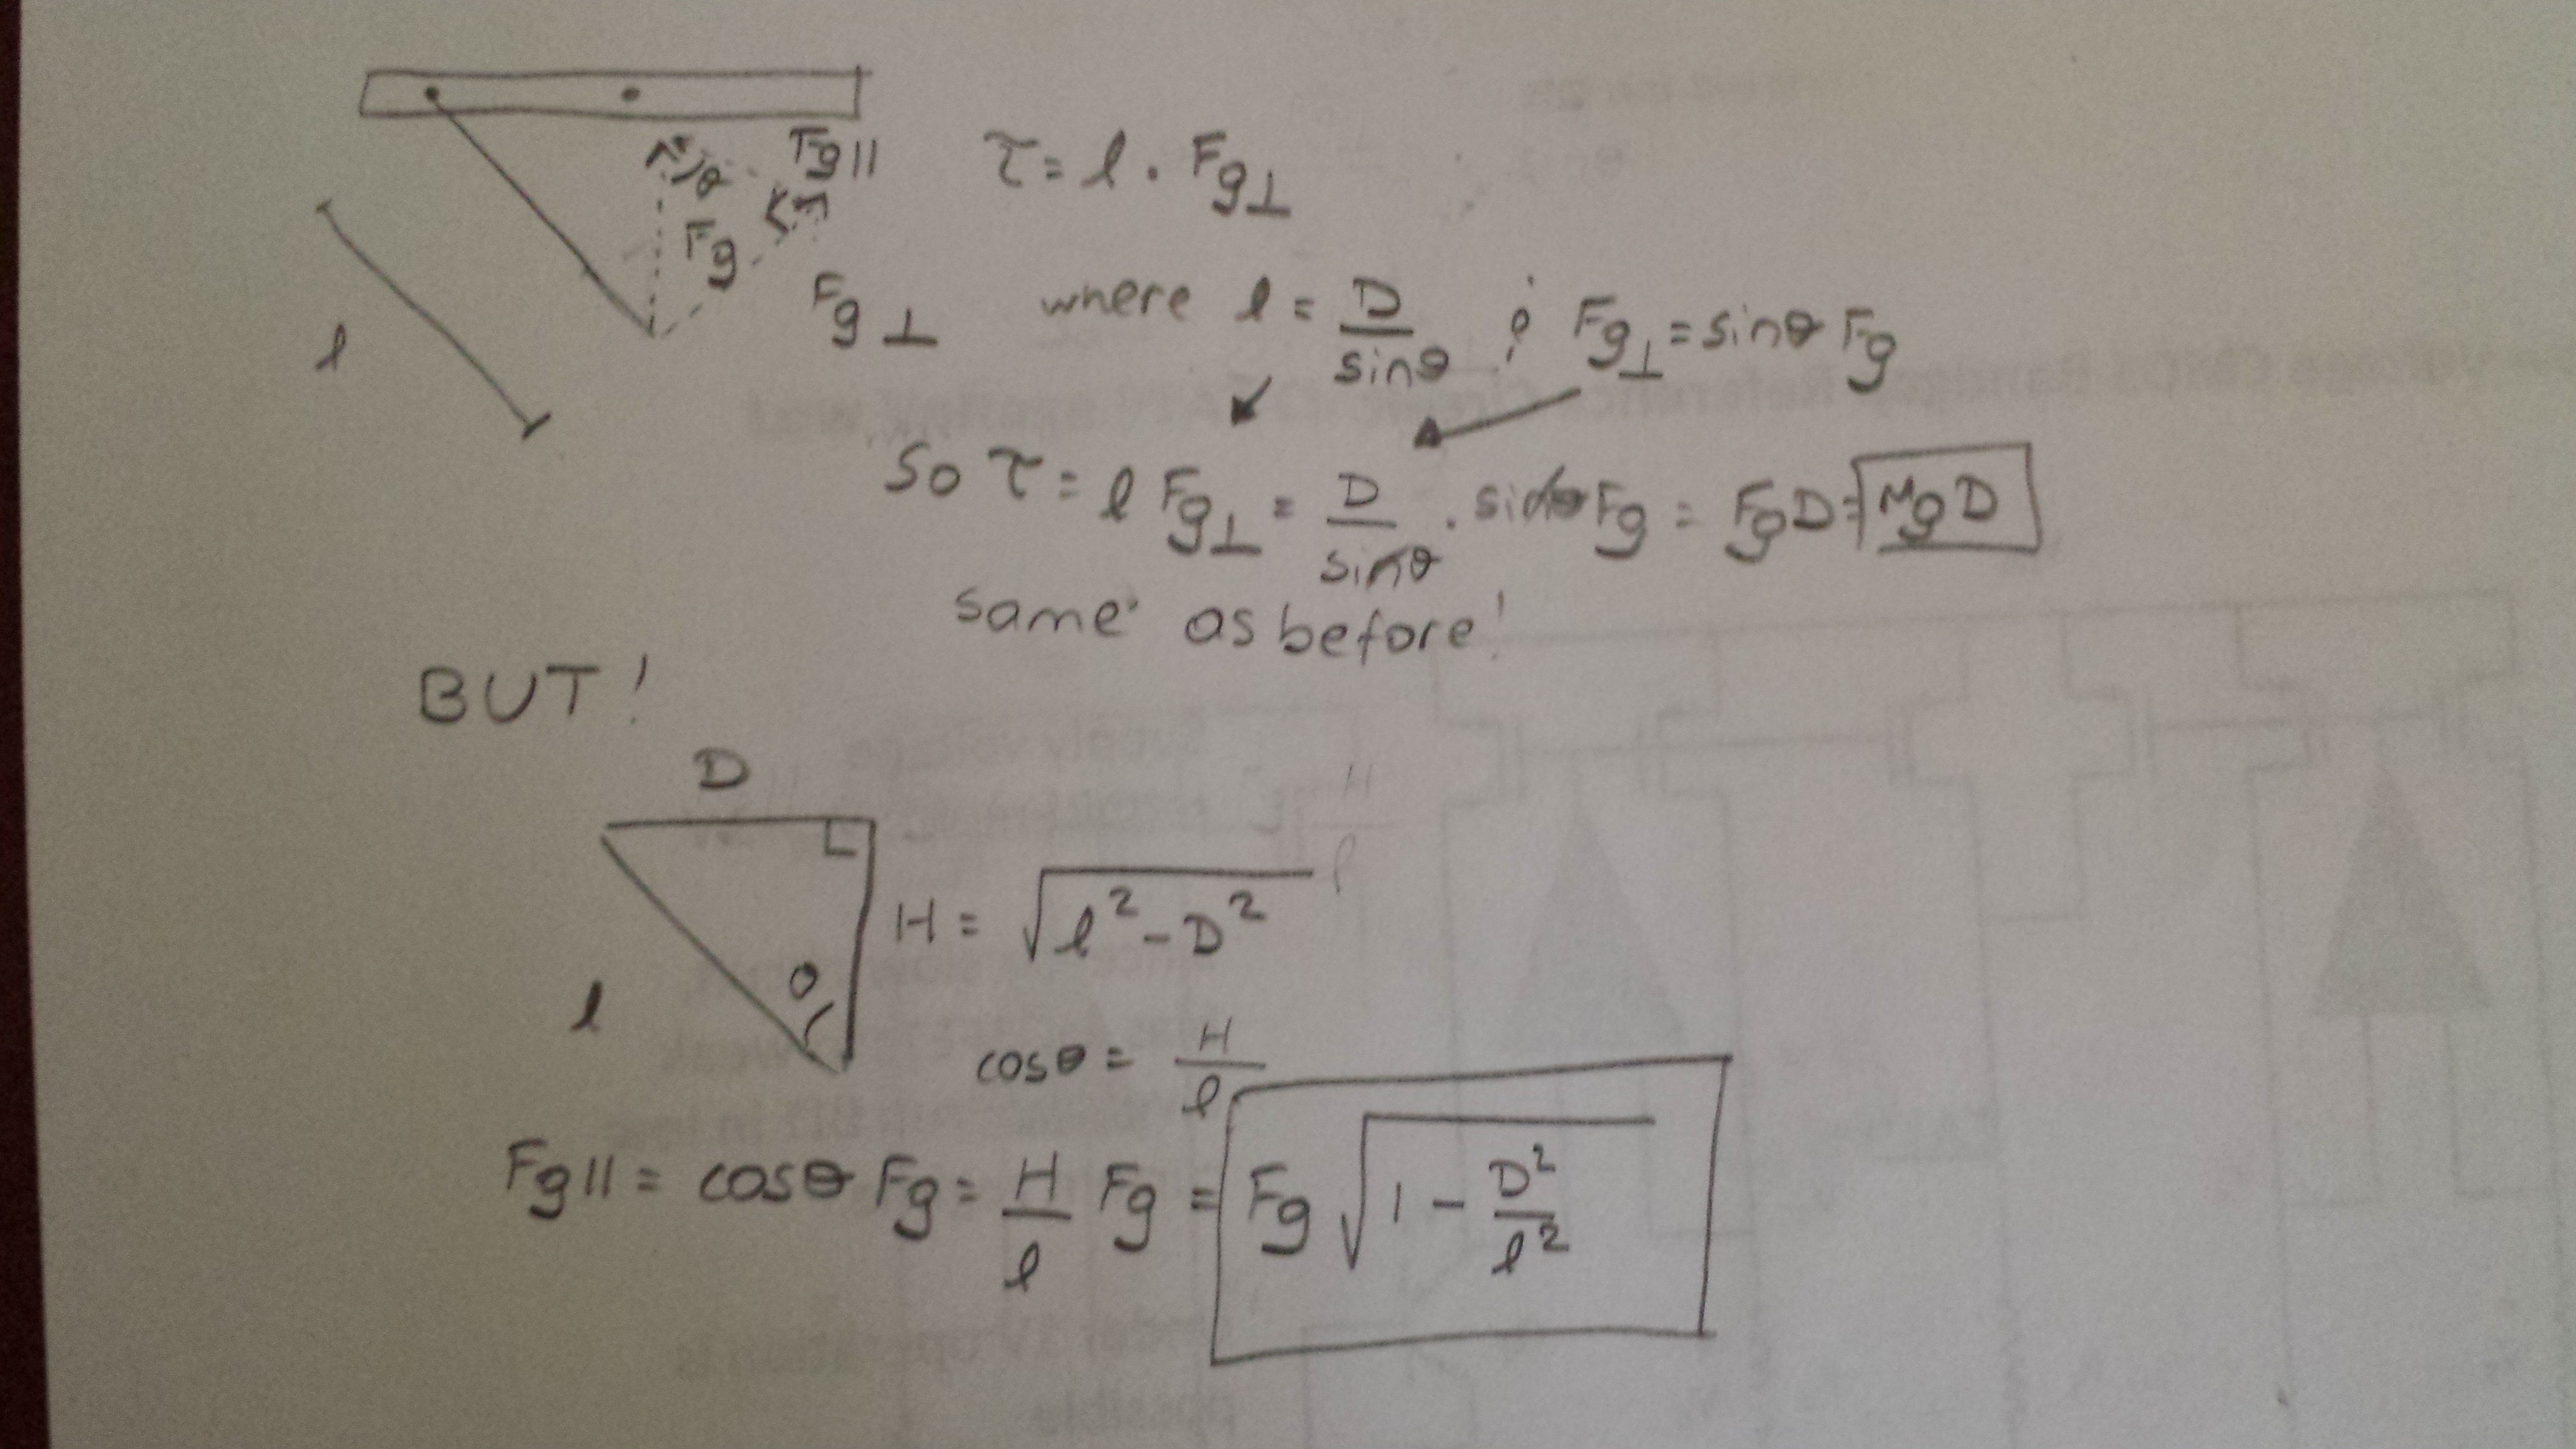 Fg||
θ
τ = l · Fg⊥
Fg
Fg⊥
where l = D/sinθ ; Fg⊥ = sinθ Fg
l
so τ = l Fg⊥ = D/sinθ · sinθ Fg = FgD = MgD
same as before!
BUT!
D
H = √(l² - D²)
θ
l
cosθ = H/l
Fg|| = cosθ Fg = H/l Fg = Fg √(1 - D²/l²)